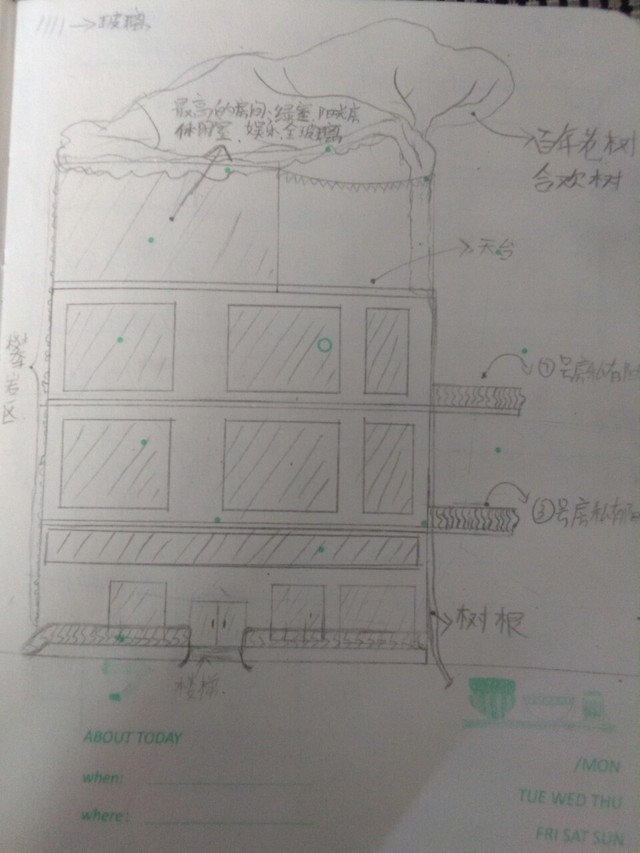 玻璃
最高的房间、绿室、阳光房
休闲室、娱乐、全玻璃
百年老树
合欢树
天台
攀岩区
①号房私有阳
③号房私有阳
树根
楼梯
ABOUT TODAY
when:
where:
/MON
TUE WED THU
FRI SAT SUN